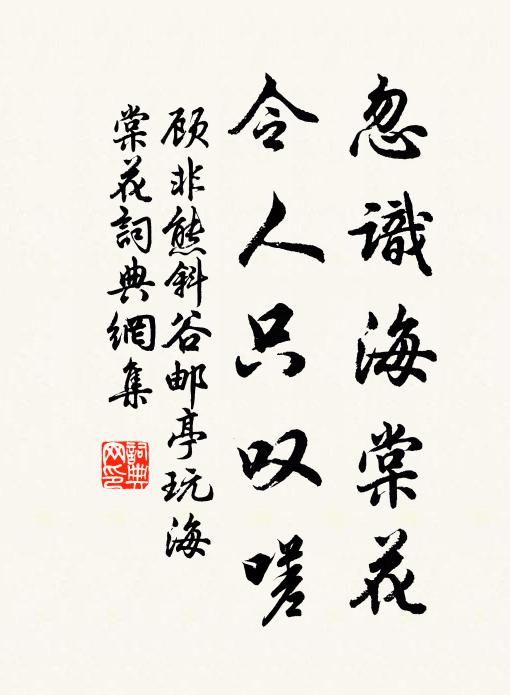 忽識海棠花
令人只叹嗟
顾非熊斜谷邮亭玩海
棠花詞典網集
詞典
网印